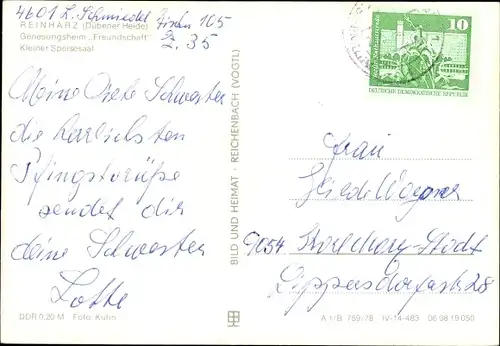 4601 L. Schmiedel Zi 105
2.35
REINHARZ (Dübener Heide)
Genesungsheim „Freundschaft"
Kleiner Speisesaal
Meine Liebe Schwester
die herzlichsten
Pfingstgrüße
sendet dir
deine Schwester
Lotte
DDR 0,20 M Foto: Kuhn
BILD UND HEIMAT · REICHENBACH (VOGTL)
10
DEUTSCHE DEMOKRATISCHE REPUBLIK
Frau
Wagner
9054 Stadt
Lippersdorferstr 28
A 1/B 759/78 IV-14-483 06 98 19 050